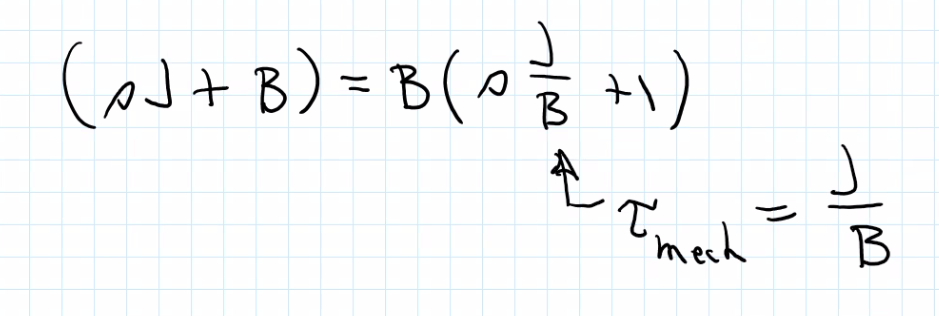 (sJ + B) = B(s J/B + 1)
τ_mech = J/B